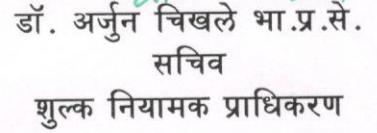 डॉ. अर्जुन चिखले भा.प्र.से.
सचिव
शुल्क नियामक प्राधिकरण